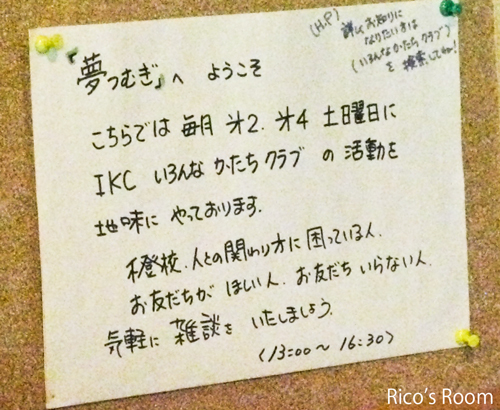 (H.P)
詳しくお知りに
なりたい方は
(いろんなかたちクラブ)
を 検索してね!
『夢つむぎ』へ ようこそ
こちらでは 毎月 㐧2. 㐧4 土曜日に
IKC いろんな かたち クラブ の 活動を
地味に やっております.
不登校. 人との関わり方に 困っている人.
お友だちが ほしい人. お友だち いらない人.
気軽に 雑談を いたしましょう.
(13:00~16:30)
Rico's Room